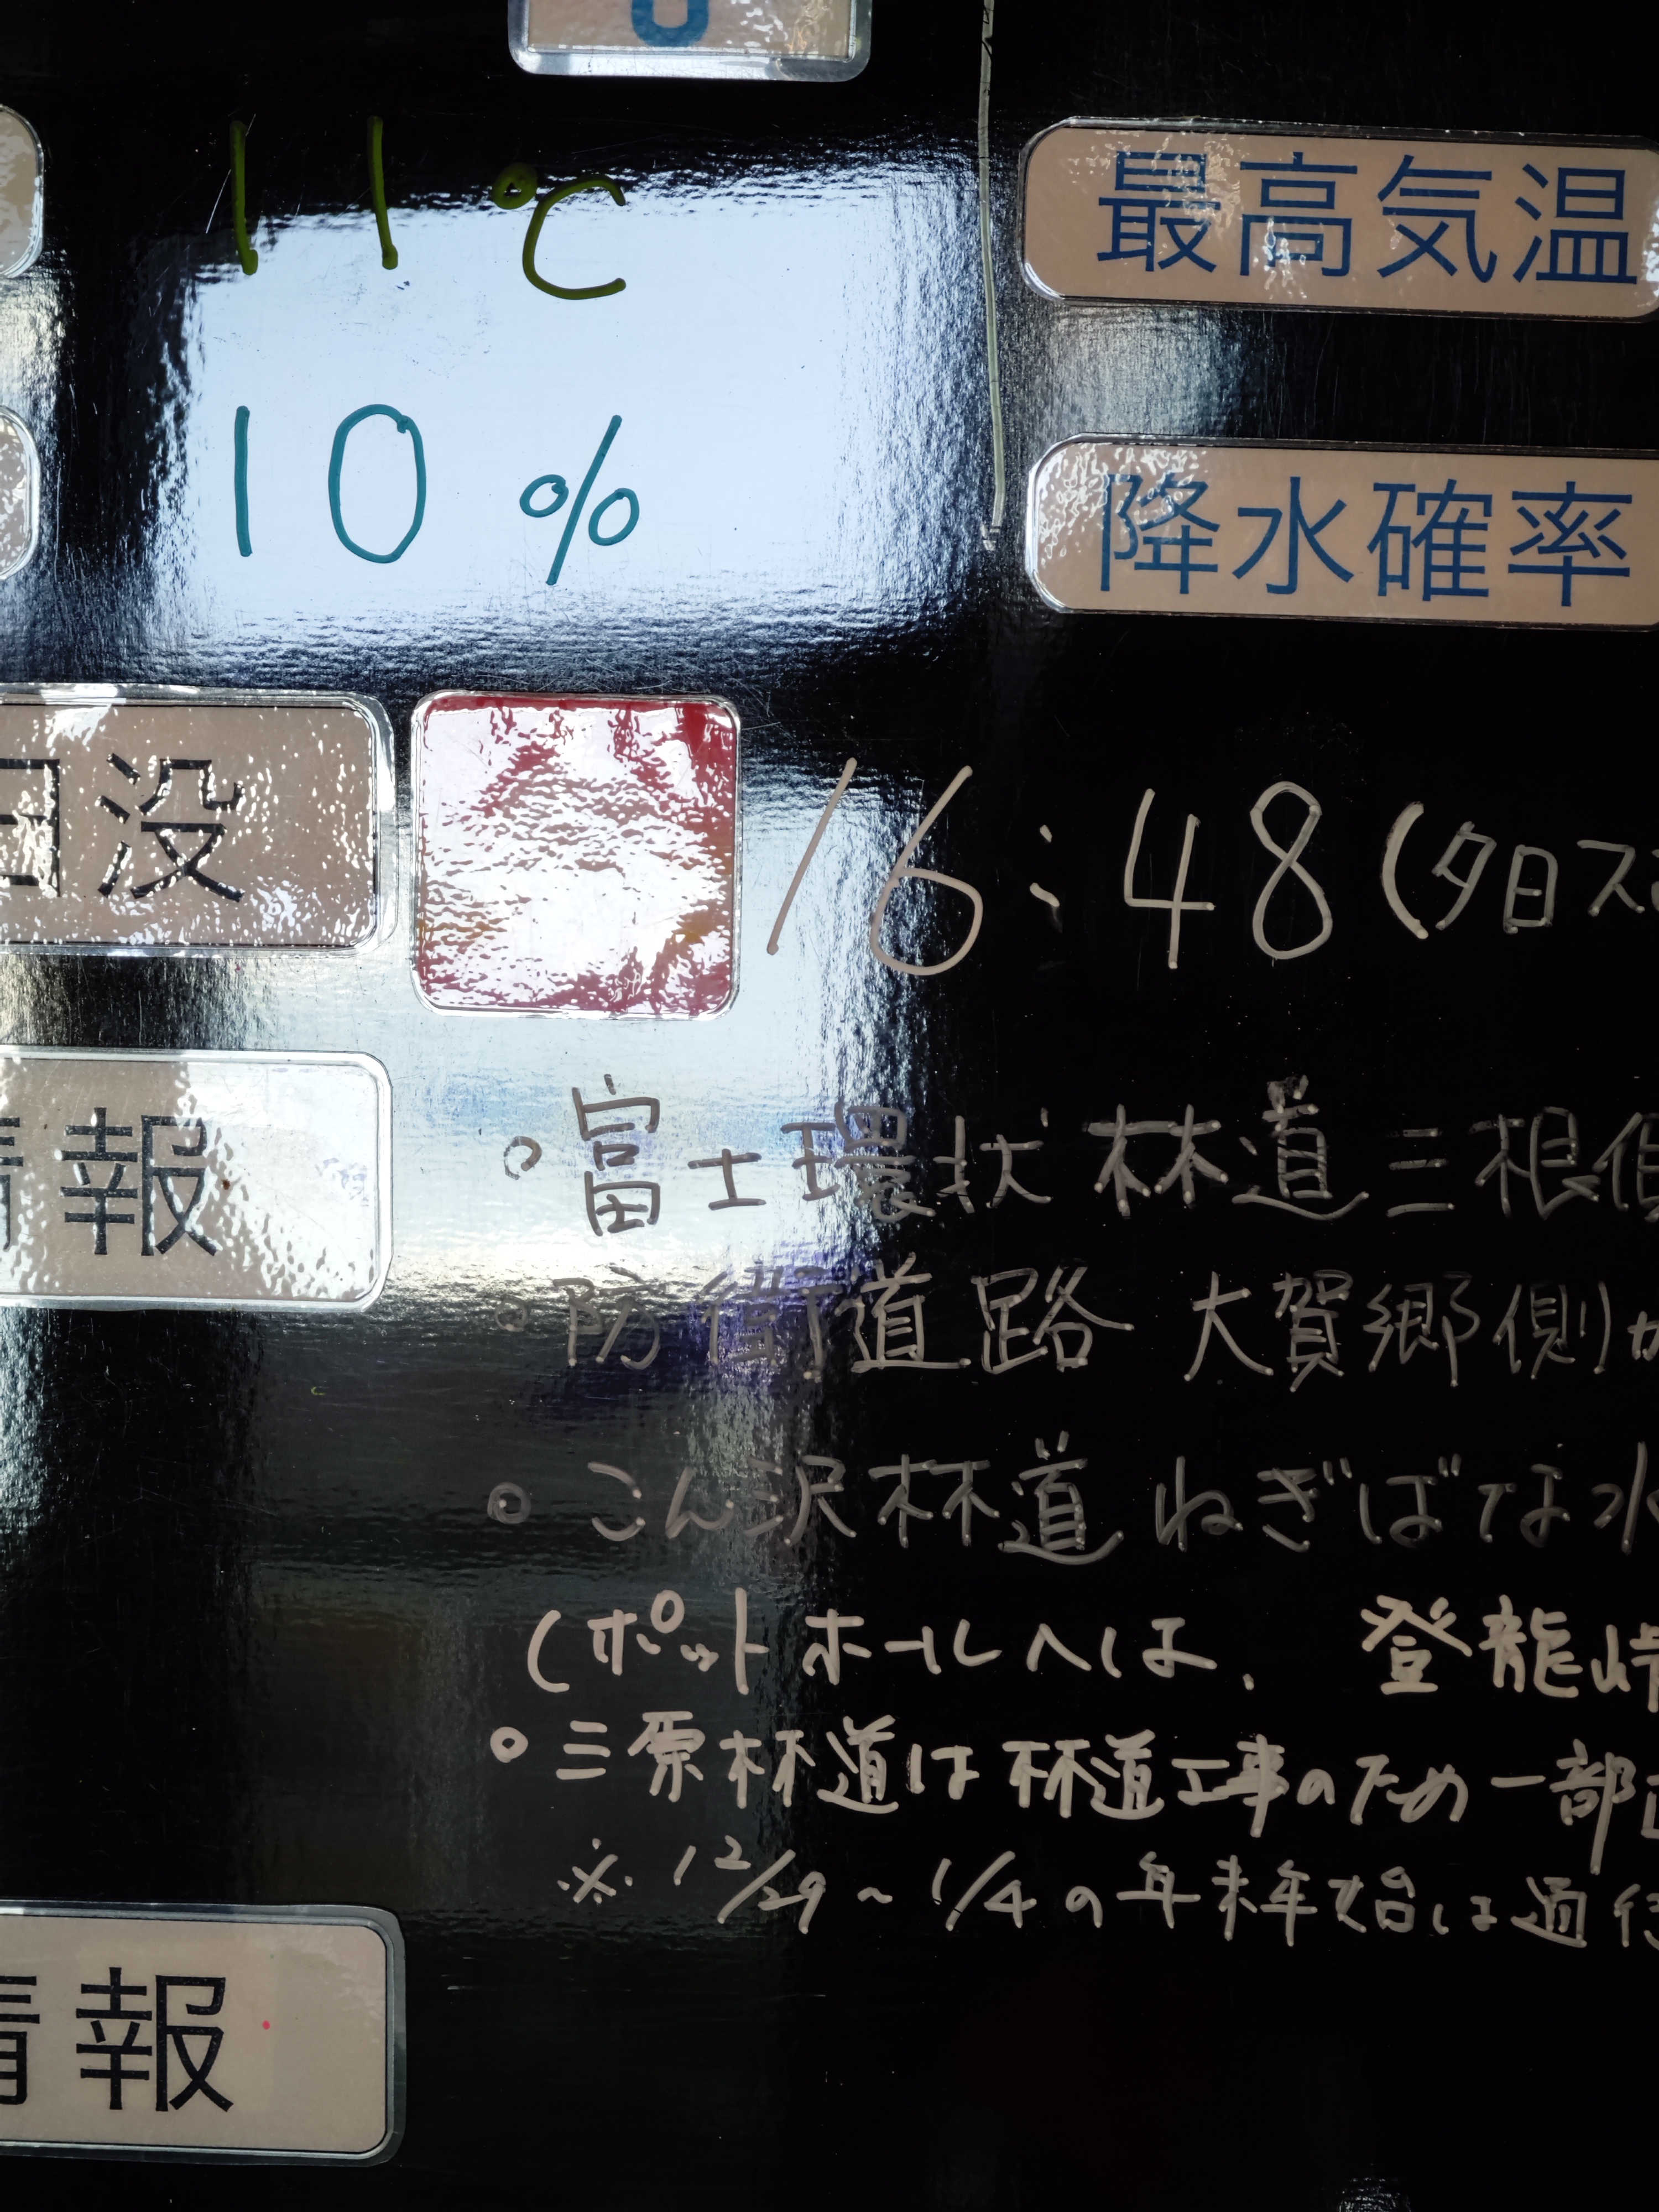 11℃
最高気温
10%
降水確率
日没
16:48(夕日ス
情報
○富士環状林道三根側
○防衛道路 大賀郷側か
○こん沢林道 ねぎばな水
(ポットホールへは、登龍峠
○三原林道は林道工事のため一部
※12/29~1/4の年末年始は通行
情報